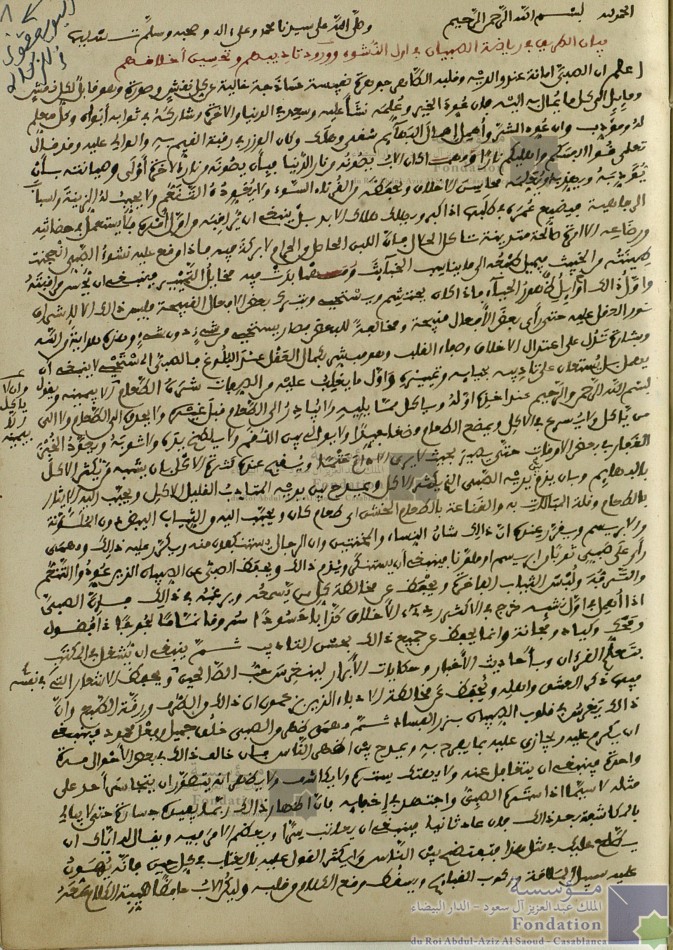 الحمد لله بسم الله الرحمن الرحيم وصلى الله على سيدنا محمد وعلى آله وصحبه وسلم تسليما
بيان الطريق في رياضة الصبيان في أول النشوء ووجه تأديبهم وتحسين أخلاقهم
اعلم ان الصبي أمانة عند والديه وقلبه الطاهر جوهرة نفيسة ساذجة خالية عن كل نقش وصورة وهو قابل لكل نقش
ومايل الى كل ما يمال به اليه فان عود الخير وعلمه نشأ عليه وسعد في الدنيا والاخرة وشاركه في ثوابه أبواه وكل معلم
له ومؤدب وان عود الشر وأهمل إهمال البهايم شقي وهلك وكان الوزر في رقبة القيم به والوالي عليه وقد قال
تعلى قوا أنفسكم وأهليكم نارا ومهما كان الاب يصونه من نار الدنيا فبأن يصونه من نار الاخرة أولى وصيانته بأن
يؤدبه ويهذبه ويعلمه محاسن الاخلاق ويحفظه من القرناء السوء ولا يعوده التنعم ولا يحبب له الزينة وأسباب
الرفاهية فيضيع عمره في طلبها اذا كبر ويهلك هلاك الابد بل ينبغي ان يراقبه من أول أمره فلا يستعمل في حضانته
ورضاعه الا امرأة صالحة متدينة تاكل الحلال فان اللبن الحاصل من الحرام لا بركة فيه فاذا وقع عليه نشوء الصبي انعجنت
طينته من الخبث فيميل طبعه الى ما يناسب الخبائث ومهما بدت فيه مخايل التمييز فينبغي ان يحسن مراقبته
وأول ذلك أوايل ظهور الحياء فاذا كان يحتشم ويستحيي ويترك بعض الافعال القبيحة فليس ذلك الا لاشراق
نور العقل عليه حتى رأى بعض الأفعال قبيحة ومخالفة للبعض فصار يستحيي من شيء دون شيء وهذه هداية من الله
وبشارة تدل على اعتدال الاخلاق وصفاء القلب وهو مبشر بكمال العقل عند البلوغ فالصبي المستحيي لا ينبغي أن
يهمل بل يستعان على تأديبه بحيايه وتمييزه وأول ما يغلب عليه من الصفات شره الطعام
بسم الله الرحمن الرحيم عند اخذه أوله وياكل مما يليه ولا يبادر الى الطعام قبل غيره ولا يحدق الى الطعام ولا الى
من ياكل ولا يسرع في الاكل ويمضغ الطعام مضغا جيدا ولا يوالي بين اللقم ولا يلطخ يده ولا ثوبه ويعود الخبز
القفار في بعض الاوقات حتى يصير بحيث لا يرى الادام حتما ويقبح عنده كثرة الاكل بان يشبه من يكثر الاكل
بالبهايم وبان يذم بين يديه الصبي الذي يكثر الاكل ويمدح بين يديه المتأدب القليل الاكل ويحبب اليه الايثار
بالطعام وقلة المبالات به والقناعة بالطعام الخشن اي طعام كان ويحبب اليه من الثياب البيض دون الملونة
والابريسم ويقرر عنده ان ذلك شأن النساء والمخنثين وان الرجال يستنكفون منه ويكرر عليه ذلك ومهما
رأى على صبي ثوبا من ابريسم او ملونا فينبغي أن يستنكره ويذم ذلك ويحفظ الصبي عن الصبيان الذين عودوا التنعم
والترفه ولبس الثياب الفاخرة ويحفظ عن مخالطة كل من يسمعه ويرغبه في ذلك فإن الصبي
اذا أهمل في أول نشئه خرج في الاكثر رديء الأخلاق كذابا حسودا سروقا نماما لحوحا ذا فضول
وضحك وكياد ومجانة وانما يحفظ عن جميع ذلك بحسن التاديب ثم ينبغي ان يشغل في المكتب
بتعلم القرءان وبأحاديث الأخبار وحكايات الأبرار لينغرس حب الصالحين في نفسه ويحفظ من الاشعار التي
فيها ذكر العشق وأهله ويحفظ عن مخالطة الادباء الذين يزعمون ان ذلك من الظرف ورقة الطبع فان
ذلك يغرس في قلوب الصبيان بزر الفساد ثم مهما ظهر من الصبي خلق جميل وفعل محمود فينبغي
ان يكرم عليه ويجازى عليه بما يفرح به ويمدح بين اظهر الناس فان خالف ذلك في بعض الأحوال مرة
واحدة فينبغي ان يتغافل عنه ولا يهتك ستره ولا يكاشف ولا يظهر له انه يتصور ان يتجاسر أحد على
مثله لا سيما اذا ستره الصبي واجتهد في إخفايه فان اظهار ذلك ربما يفيده جسارة حتى لا يبالي
بالمكاشفة بعد ذلك فان عاد ثانيا فينبغي ان يعاتب سرا ويعظم الامر فيه ويقال له اياك ان
يطلع عليك في مثل هذا فتفتضح بين الناس ولا يكثر القول عليه بالعتاب في كل حين فانه يهون
عليه سماع الملامة وركوب القبايح ويسقط وقع الكلام من قلبه وليكن الاب حافظا هيبة الكلام معه
مؤسسة
الملك عبد العزيز آل سعود - الدار البيضاء
Fondation
du Roi Abdul-Aziz Al Saoud - Casablanca